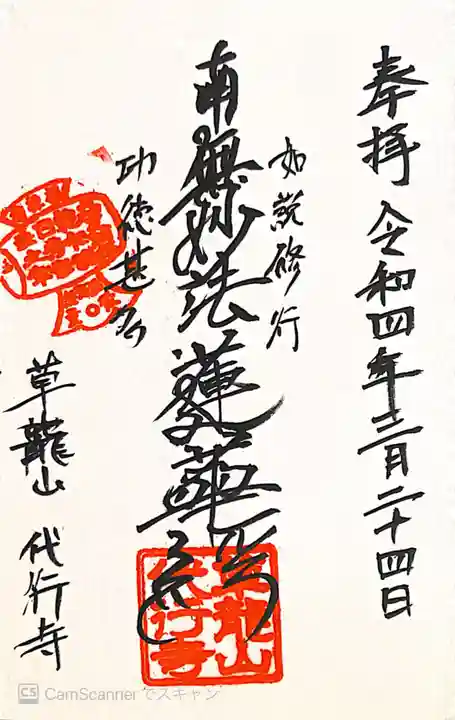 奉拝 令和四年十二月二十四日
如説修行
南無妙法蓮華経
功徳甚多
草龍山 代行寺
草龍山
代行寺
CS CamScannerでスキャン